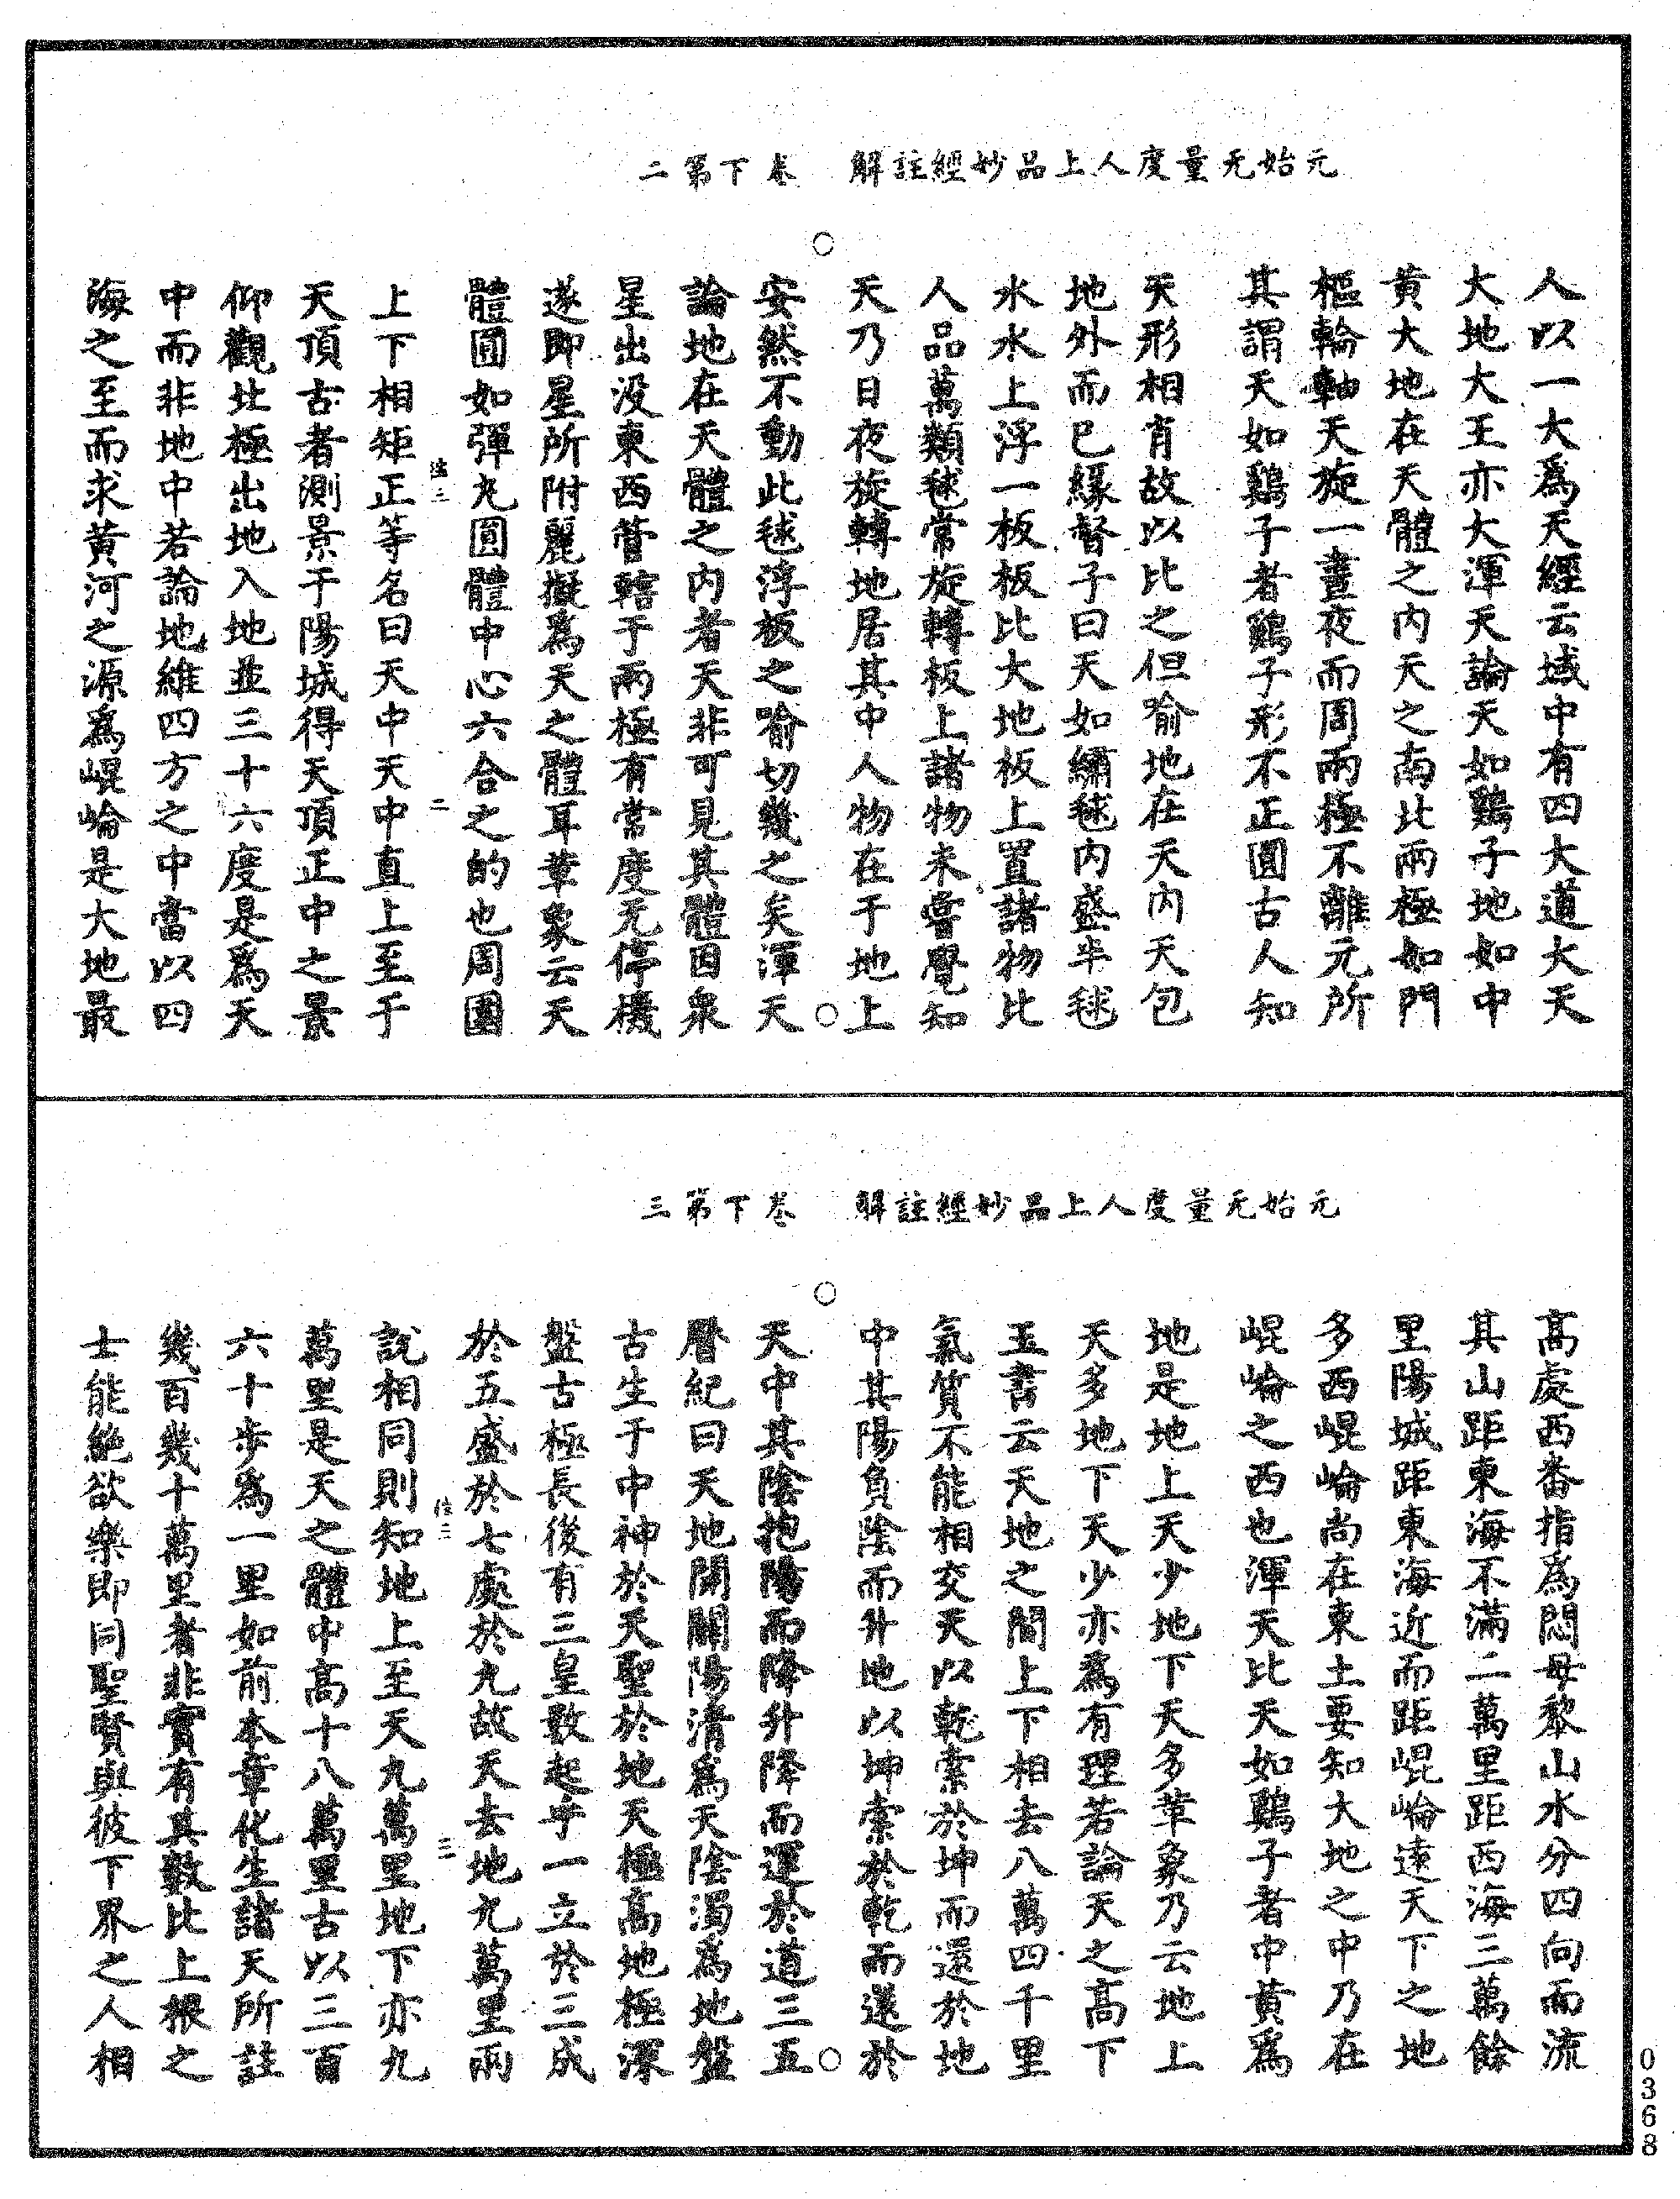 元始无量度人上品妙經註解　卷下第二
人以一大爲天經云域中有四大道大天
大地大王亦大渾天論天如鷄子地如中
黃大地在天體之内天之南北兩極如門
樞輪軸天旋一晝夜而周兩極不離元所
其謂天如鷄子者鷄子形不正圓古人知
天形相肖故以比之但喻地在天内天包
地外而已緣督子曰天如繡毬内盛半毬
水水上浮一板板比大地板上置諸物比
人品萬類毬常旋轉板上諸物未嘗覺知
天乃日夜旋轉地居其中人物在于地上
安然不動此毬浮板之喻切幾之矣渾天
論地在天體之内者天非可見其體因衆
星出没東西管轄于兩極有常度无停機
遂即星所附麗擬爲天之體耳韋象云天
體圓如彈丸圓體中心六合之的也周圍
上下相矩正等名曰天中天中直上至于
天頂古者測景于陽城得天頂正中之景
仰觀北極出地入地並三十六度是爲天
中而非地中若論地維四方之中當以四
海之至而求黃河之源爲崐崘是大地最
二
元始无量度人上品妙經註解　卷下第三
高處西番指爲悶母黎山水分四向而流
其山距東海不滿二萬里距西海三萬餘
里陽城距東海近而距崐崘遠天下之地
多西崐崘尚在東土要知大地之中乃在
崐崘之西也渾天比天如鷄子者中黃爲
地是地上天少地下天多革象乃云地上
天多地下天少亦爲有理若論天之高下
玉書云天地之間上下相去八萬四千里
氣質不能相交天以乾索於坤而還於地
中其陽負陰而升地以坤索於乾而還於
天中其陰抱陽而降升降而運於道三五
曆紀曰天地開闢陽清爲天陰濁爲地盤
古生于中神於天聖於地天極高地極深
盤古極長後有三皇數起乎一立於三成
於五盛於七處於九故天去地九萬里兩
說相同則知地上至天九萬里地下亦九
萬里是天之體中高十八萬里古以三百
六十步爲一里如前本章化生諸天所註
幾百幾十萬里者非實有其數比上根之
士能絶欲樂即同聖賢與彼下界之人相
三
0368